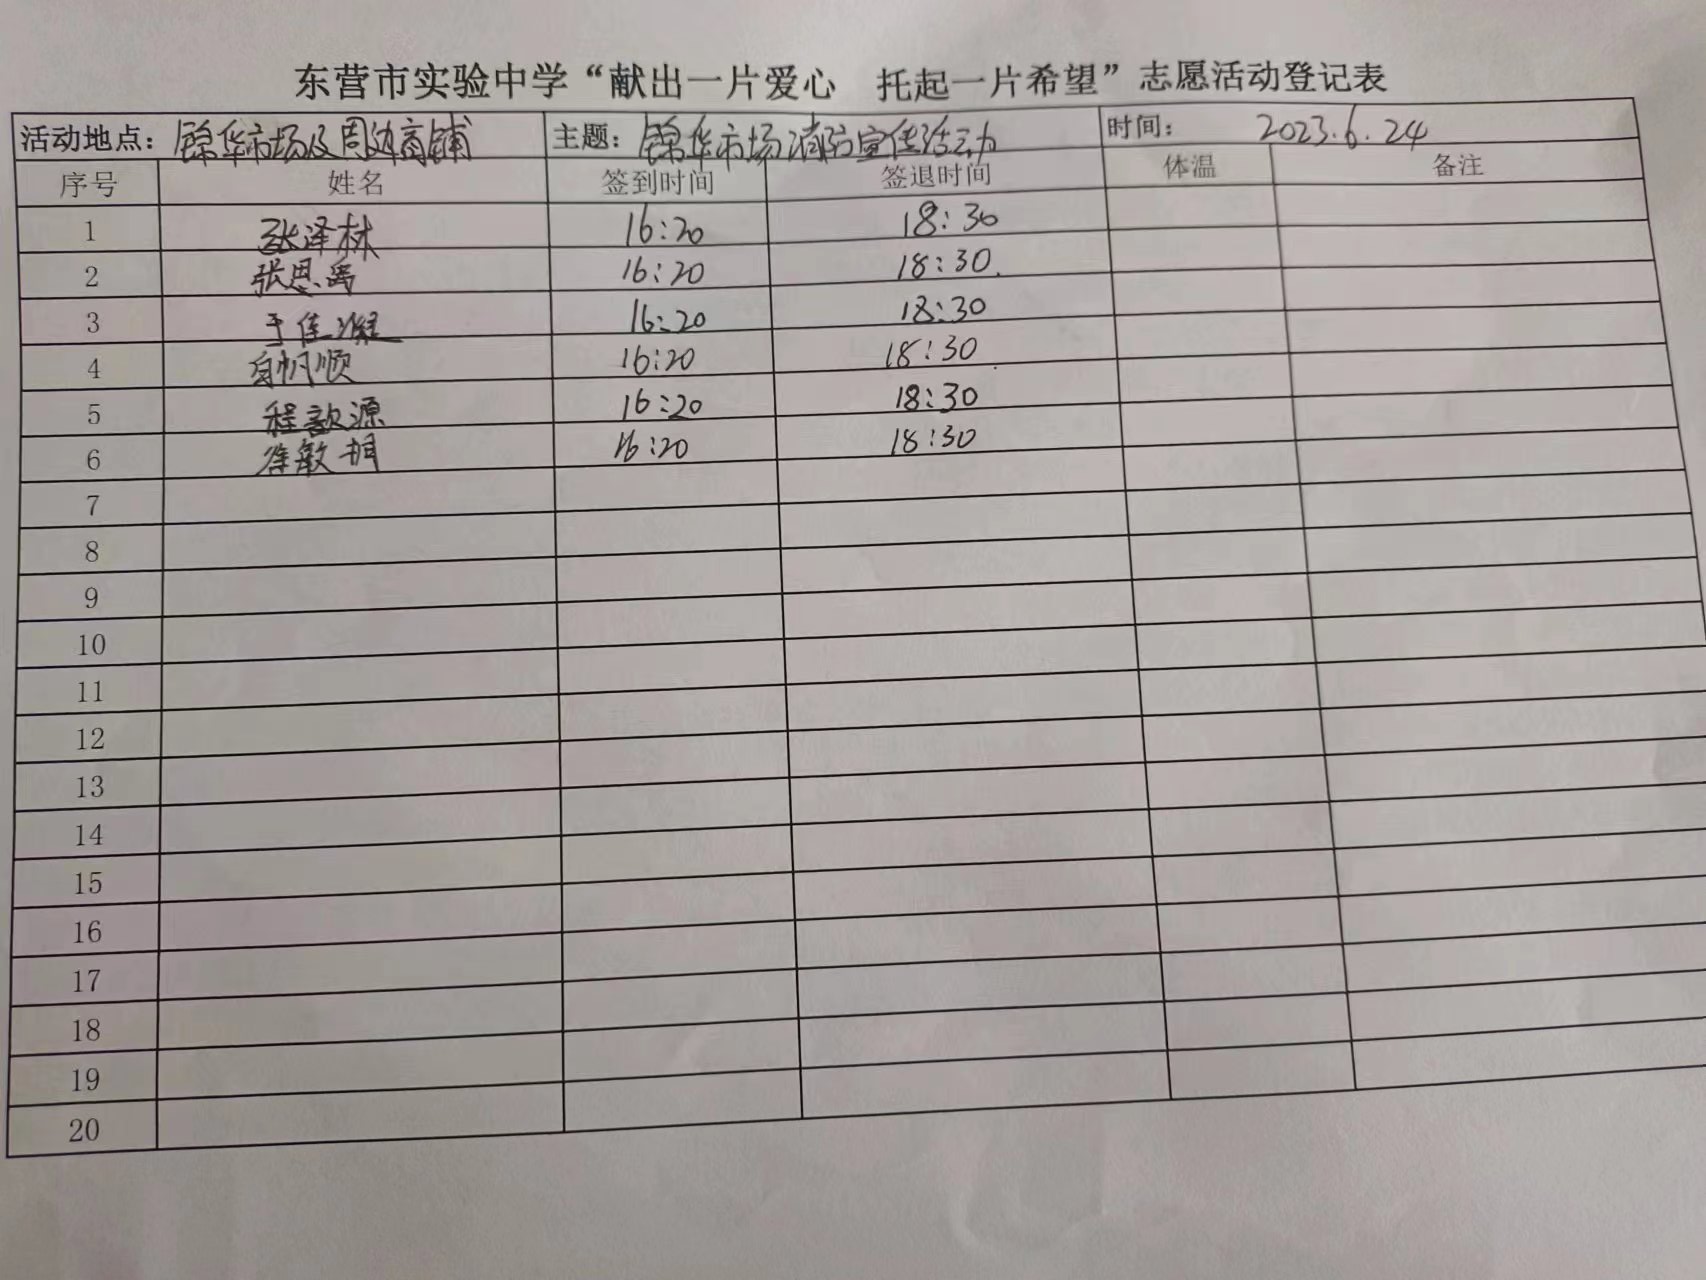 东营市实验中学“献出一片爱心 托起一片希望”志愿活动登记表
活动地点：锦华市场及周边商铺 主题：锦华市场消防宣传活动 时间： 2023.6.24
序号 姓名 签到时间 签退时间 体温 备注
1 张泽林 16:20 18:30
2 张思禹 16:20 18:30
3 于佳凝 16:20 18:30
4 帆顺 16:20 18:30
5 程歆源 16:20 18:30
6 徐敏 16:20 18:30
7
8
9
10
11
12
13
14
15
16
17
18
19
20